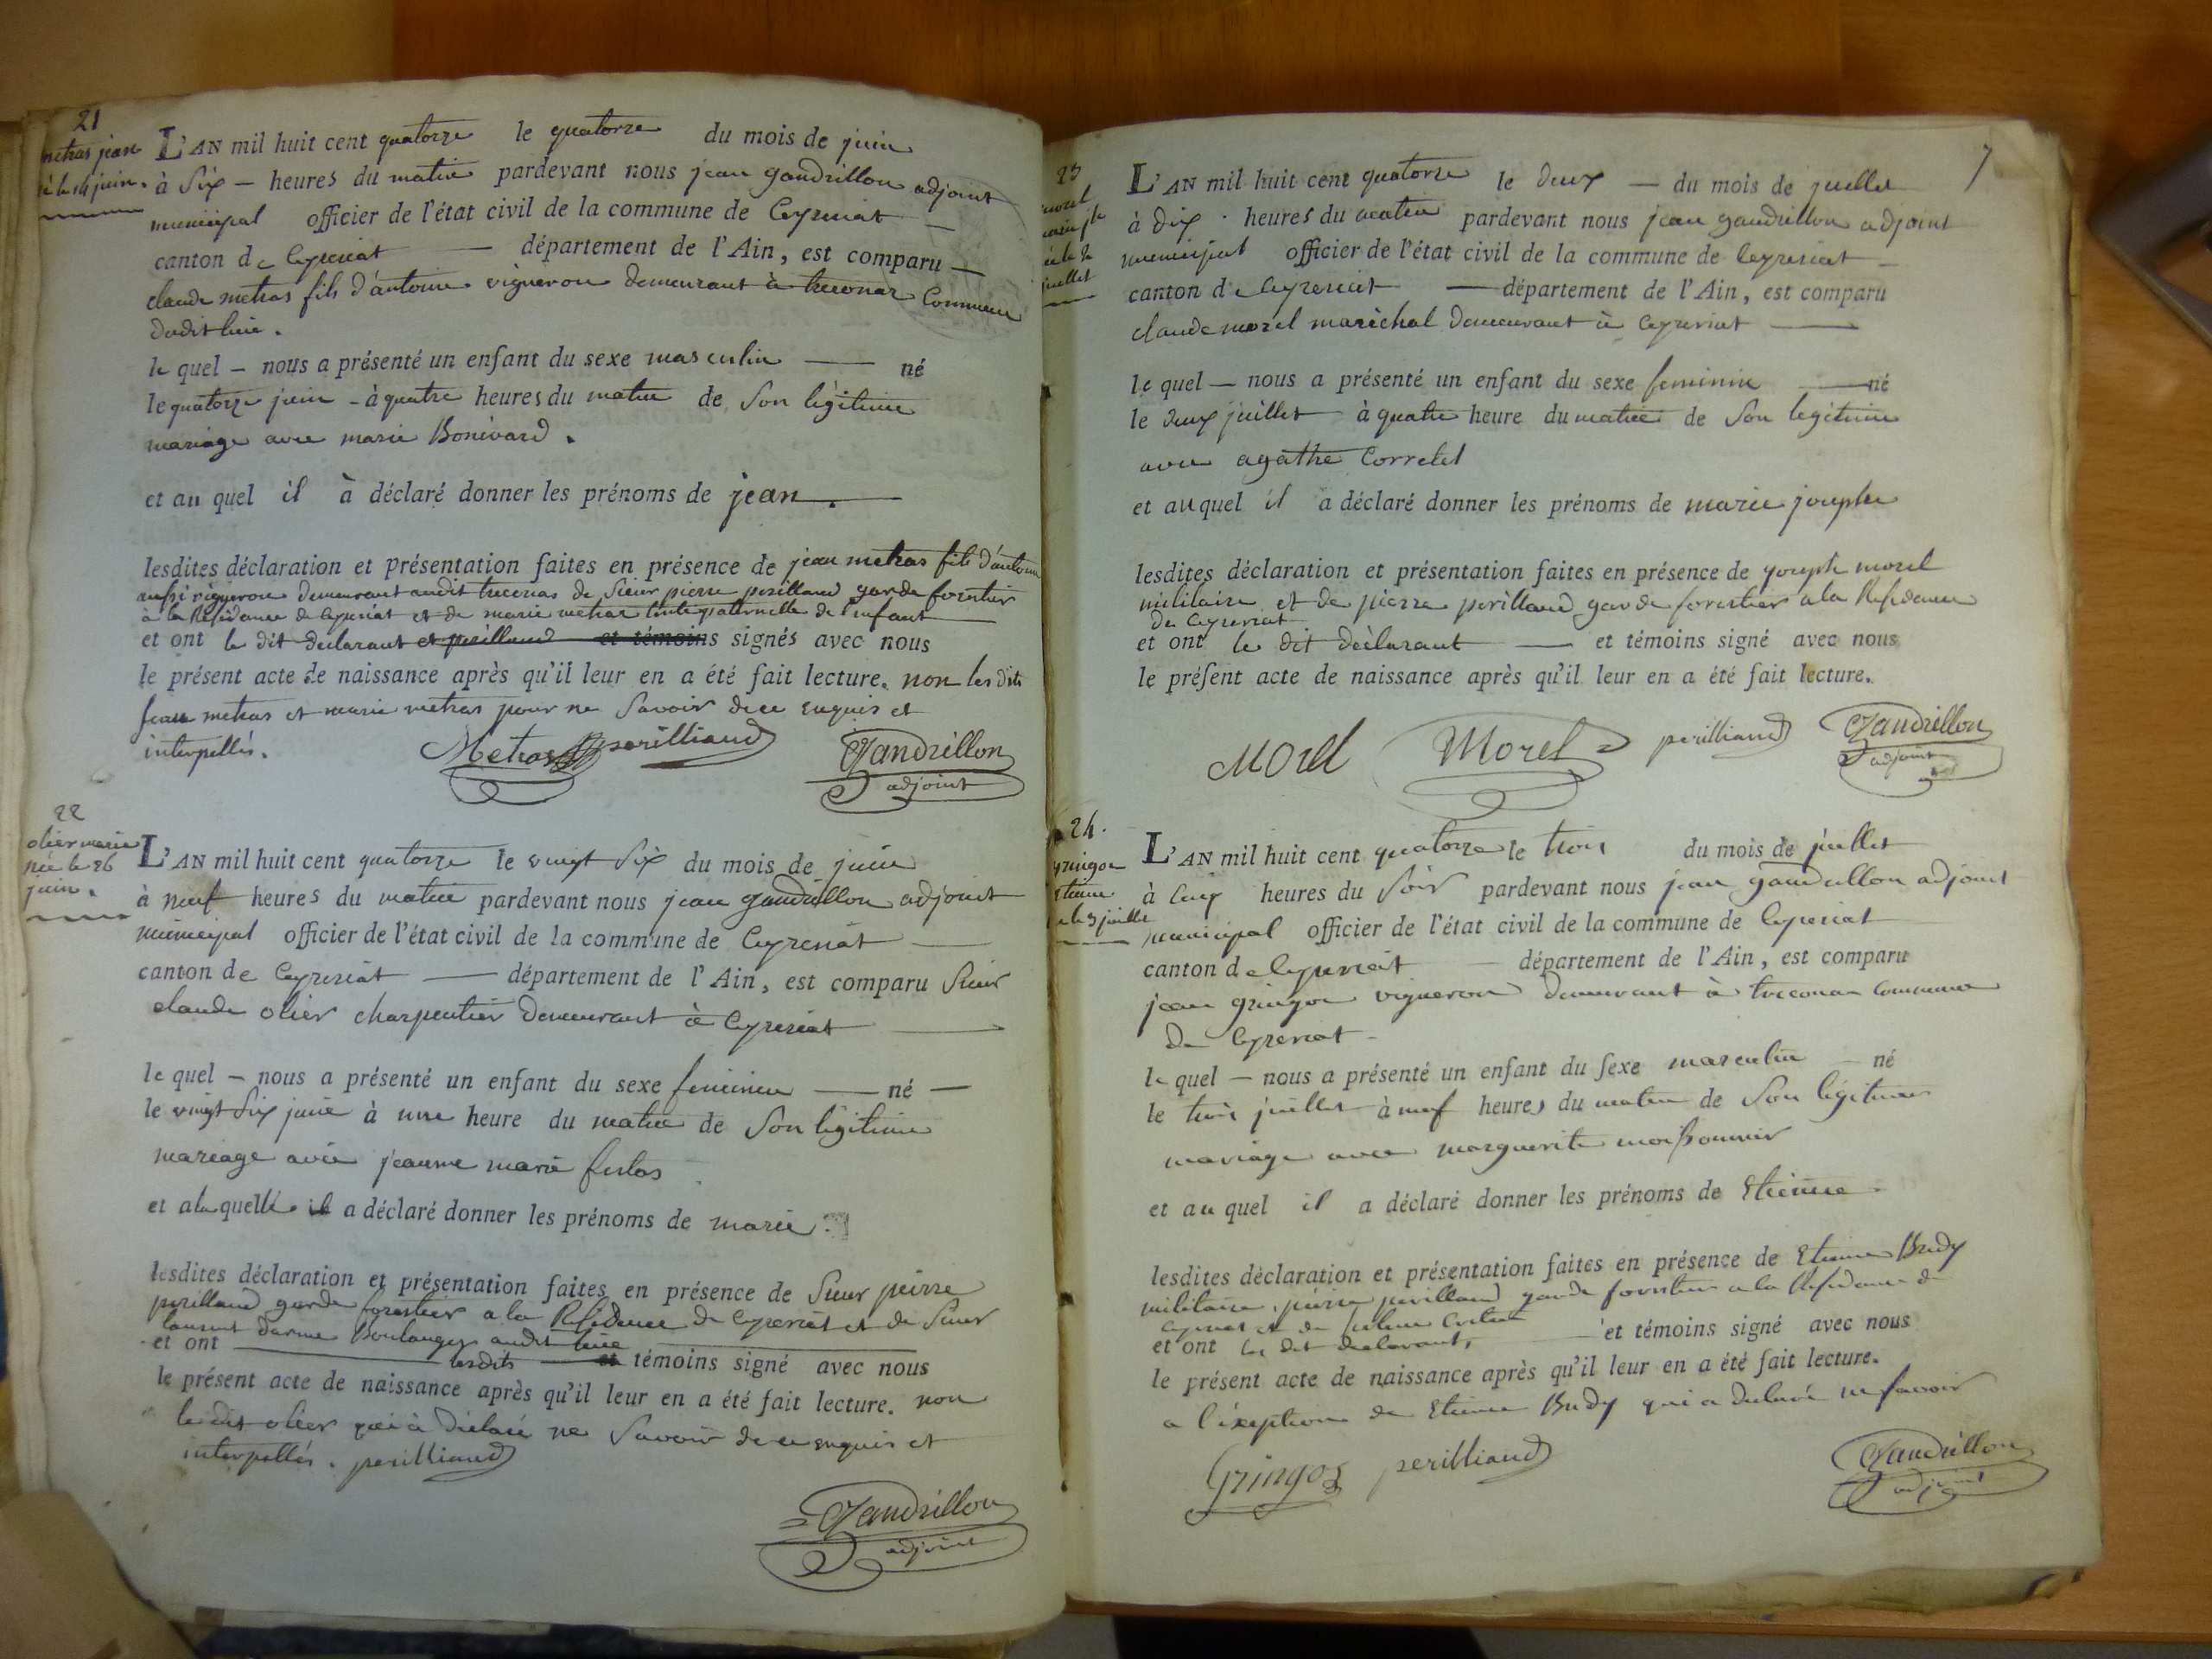 21
metras jean
né le 14 juin.
L'AN mil huit cent quatorze le quatorze du mois de juin
à six — heures du matin pardevant nous jean gandrillon adjoint
municipal officier de l'état civil de la commune de Ceyzeriat —
canton de Ceyzeriat — département de l'Ain, est comparu —
claude metras fils d'antoine vigneron demeurant à treconas Commune
dudit lieu.
le quel — nous a présenté un enfant du sexe masculin — né
le quatorze juin - à quatre heures du matin de son légitime
mariage avec marie Bonévard.
et au quel il à déclaré donner les prénoms de jean.
lesdites déclaration et présentation faites en présence de jean metras fils d'antoine
aussi vigneron demeurant audit treconas de Sieur pierre perilliand garde forestier
à la Résidence de Ceyzeriat et de marie metras tante paternelle de l'enfant
et ont le dit declarant et perilliand et témoins signés avec nous
le présent acte de naissance après qu'il leur en a été fait lecture. non les dits
jean metras et marie metras pour ne savoir de ce enquis et
interpellés.
Metras perilliand Gandrillon
adjoint
22
olier marie
née le 26
juin.
L'AN mil huit cent quatorze le vingt six du mois de juin
à neuf heures du matin pardevant nous jean gandrillon adjoint
municipal officier de l'état civil de la commune de Ceyzeriat —
canton de Ceyzeriat — département de l'Ain, est comparu Sieur
claude olier charpentier demeurant à Ceyzeriat —
le quel — nous a présenté un enfant du sexe feminin — né —
le vingt six juin à une heure du matin de son légitime
mariage avec jeanne marie
et alaquelle il a déclaré donner les prénoms de marie.
lesdites déclaration et présentation faites en présence de Sieur pierre
perilliand garde forestier a la Résidence de Ceyzeriat et de Sieur
laurent Boulanger audit lieu
et ont lesdits et témoins signé avec nous
le présent acte de naissance après qu'il leur en a été fait lecture. non
le dit olier qui à déclaré ne savoir de ce enquis et
interpellés. perilliand
Gandrillon
adjoint
7
23
morel
née le 2
juillet
L'AN mil huit cent quatorze le deux — du mois de juillet
à dix heures du matin pardevant nous jean gandrillon adjoint
municipal officier de l'état civil de la commune de Ceyzeriat —
canton de Ceyzeriat — département de l'Ain, est comparu
claude morel maréchal demeurant à Ceyzeriat —
le quel — nous a présenté un enfant du sexe feminin — né
le deux juillet à quatre heure du matin de son légitime
avec agathe Corretel
et au quel il a déclaré donner les prénoms de marie josephe
lesdites déclaration et présentation faites en présence de joseph morel
militaire et de pierre perilliand garde forestier a la Résidence
de Ceyzeriat
et ont le dit déclarant — et témoins signé avec nous
le présent acte de naissance après qu'il leur en a été fait lecture.
Morel Morel perilliand Gandrillon
adjoint
24.
gringoz
Etienne
né le 3 juillet
L'AN mil huit cent quatorze le trois du mois de juillet
à cinq heures du soir pardevant nous jean gandrillon adjoint
municipal officier de l'état civil de la commune de Ceyzeriat
canton de Ceyzeriat — département de l'Ain, est comparu
jean gringoz vigneron demeurant à treconas Commune
de Ceyzeriat -
le quel — nous a présenté un enfant du sexe masculin — né
le trois juillet à neuf heures du matin de son légitime
mariage avec marguerite moissonnier
et au quel il a déclaré donner les prénoms de Etienne.
lesdites déclaration et présentation faites en présence de Etienne Brudy
militaire, pierre perilliand garde forestier a la Résidence de
Ceyzeriat et de
et ont les dit declarant, — et témoins signé avec nous
le présent acte de naissance après qu'il leur en a été fait lecture.
a l'exeption de Etienne Brudy qui a declaré ne savoir
Gringoz perilliand Gandrillon
adjoint